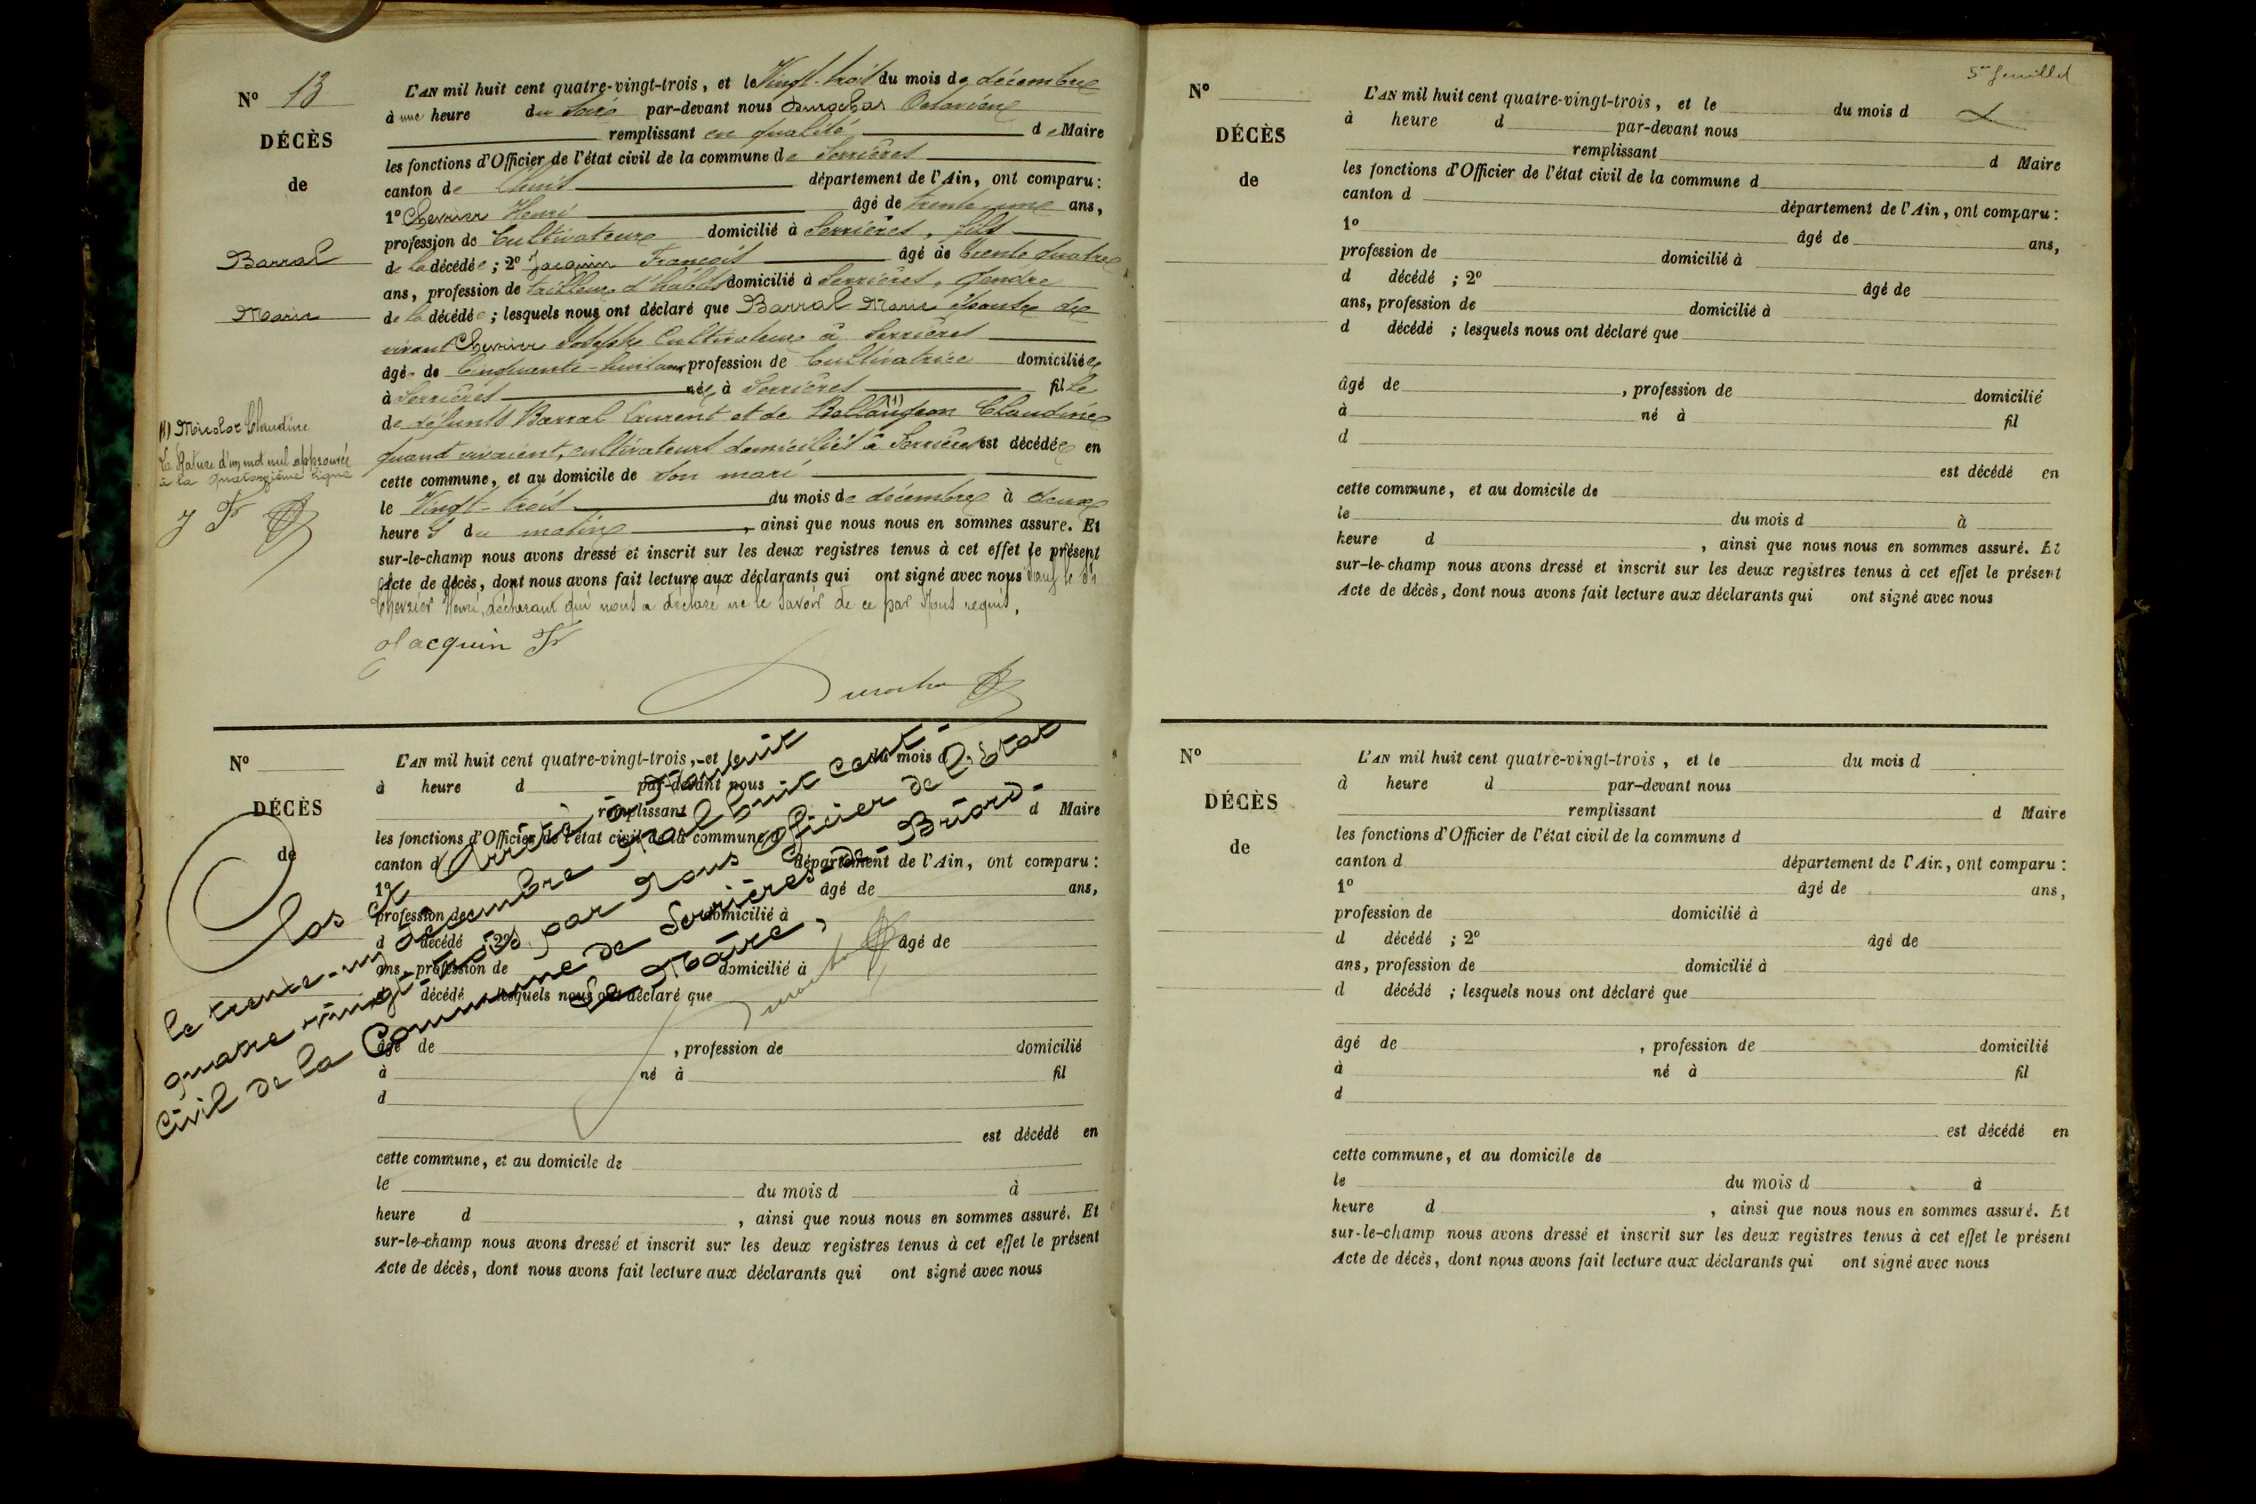 N° 13
DÉCÈS
de
Barral
Marie
L'AN mil huit cent quatre-vingt-trois, et le Vingt-trois du mois de décembre
à une heure du soir par-devant nous Durochat Octavien
remplissant en qualité de Maire
les fonctions d'Officier de l'état civil de la commune de Serrières
canton de Lhuis département de l'Ain, ont comparu :
1° Chevrier Henri âgé de trente une ans,
profession de Cultivateur domicilié à Serrières, fils
de la décédée ; 2° Jacquin François âgé de Trente quatre
ans, profession de tailleur d'habits domicilié à Serrières, Gendre
de la décédée ; lesquels nous ont déclaré que Barral Marie épouse de
vivant Chevrier Joseph Cultivateur à Serrières
âgée de Cinquante-huit ans profession de Cultivatrice domiciliée
à Serrières née à Serrières fille
de défunts Barral Laurent et de (1) Claudine
quand vivaient, cultivateurs domiciliés à Serrières est décédée en
cette commune, et au domicile de son mari
le Vingt-trois du mois de décembre à deux
heures du matin, ainsi que nous nous en sommes assuré. Et
sur-le-champ nous avons dressé et inscrit sur les deux registres tenus à cet effet le présent
Acte de décès, dont nous avons fait lecture aux déclarants qui ont signé avec nous sauf le dit
Chevrier Henri, déclarant qui nous a déclaré ne le savoir de ce par Nous requis.
(1) Micolot Claudine
La Rature d'un mot nul approuvée
à la quatorzième ligne
J Fr
Jacquin Fr
Durochat
N°
DÉCÈS
de
L'AN mil huit cent quatre-vingt-trois, et le du mois d
à heure d par-devant nous
remplissant d Maire
les fonctions d'Officier de l'état civil de la commune d
canton d département de l'Ain, ont comparu :
1° âgé de ans,
profession de domicilié à
d décédé ; 2° âgé de
ans, profession de domicilié à
d décédé ; lesquels nous ont déclaré que
âgé de , profession de domicilié
à né à fil
d
est décédé en
cette commune, et au domicile de
le du mois d à
heure d , ainsi que nous nous en sommes assuré. Et
sur-le-champ nous avons dressé et inscrit sur les deux registres tenus à cet effet le présent
Acte de décès, dont nous avons fait lecture aux déclarants qui ont signé avec nous
Clos et Arrêté à minuit
le trente-un décembre Mal huit cent-
quatre vingt-trois par Nous Officier de l'Etat
Civil de la Commune de Serrières-de-Briord-
Le Maire,
Durochat
5e feuillet
N°
DÉCÈS
de
L'AN mil huit cent quatre-vingt-trois, et le du mois d
à heure d par-devant nous
remplissant d Maire
les fonctions d'Officier de l'état civil de la commune d
canton d département de l'Ain, ont comparu :
1° âgé de ans,
profession de domicilié à
d décédé ; 2° âgé de
ans, profession de domicilié à
d décédé ; lesquels nous ont déclaré que
âgé de , profession de domicilié
à né à fil
d
est décédé en
cette commune, et au domicile de
le du mois d à
heure d , ainsi que nous nous en sommes assuré. Et
sur-le-champ nous avons dressé et inscrit sur les deux registres tenus à cet effet le présent
Acte de décès, dont nous avons fait lecture aux déclarants qui ont signé avec nous
N°
DÉCÈS
de
L'AN mil huit cent quatre-vingt-trois, et le du mois d
à heure d par-devant nous
remplissant d Maire
les fonctions d'Officier de l'état civil de la commune d
canton d département de l'Ain, ont comparu :
1° âgé de ans,
profession de domicilié à
d décédé ; 2° âgé de
ans, profession de domicilié à
d décédé ; lesquels nous ont déclaré que
âgé de , profession de domicilié
à né à fil
d
est décédé en
cette commune, et au domicile de
le du mois d à
heure d , ainsi que nous nous en sommes assuré. Et
sur-le-champ nous avons dressé et inscrit sur les deux registres tenus à cet effet le présent
Acte de décès, dont nous avons fait lecture aux déclarants qui ont signé avec nous